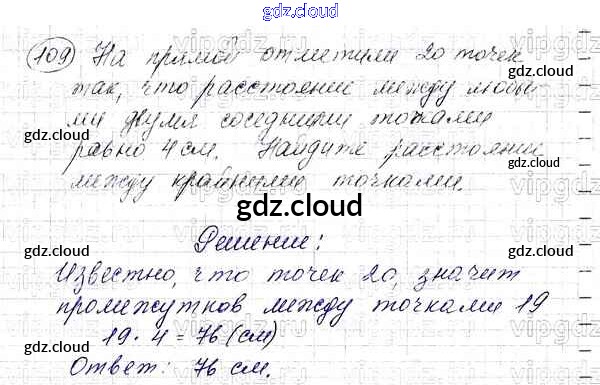 gdz.cloud
109 На прямой отметили 20 точек
gdz.cloud
так, что расстояние между любы
gdz.cloud
ми двумя соседними точками
gdz.cloud gdz.cloud
равно 4 см. Найдите расстояние
между крайними точками.
gdz.cloud
gdz.cloud
Решение:
gdz.cloud gdz.cloud
Известно, что точек 20, значит
промежутков между точками 19
19 · 4 = 76 (см)
gdz.cloud gdz.cloud
Ответ: 76 см.
gdz.cloud